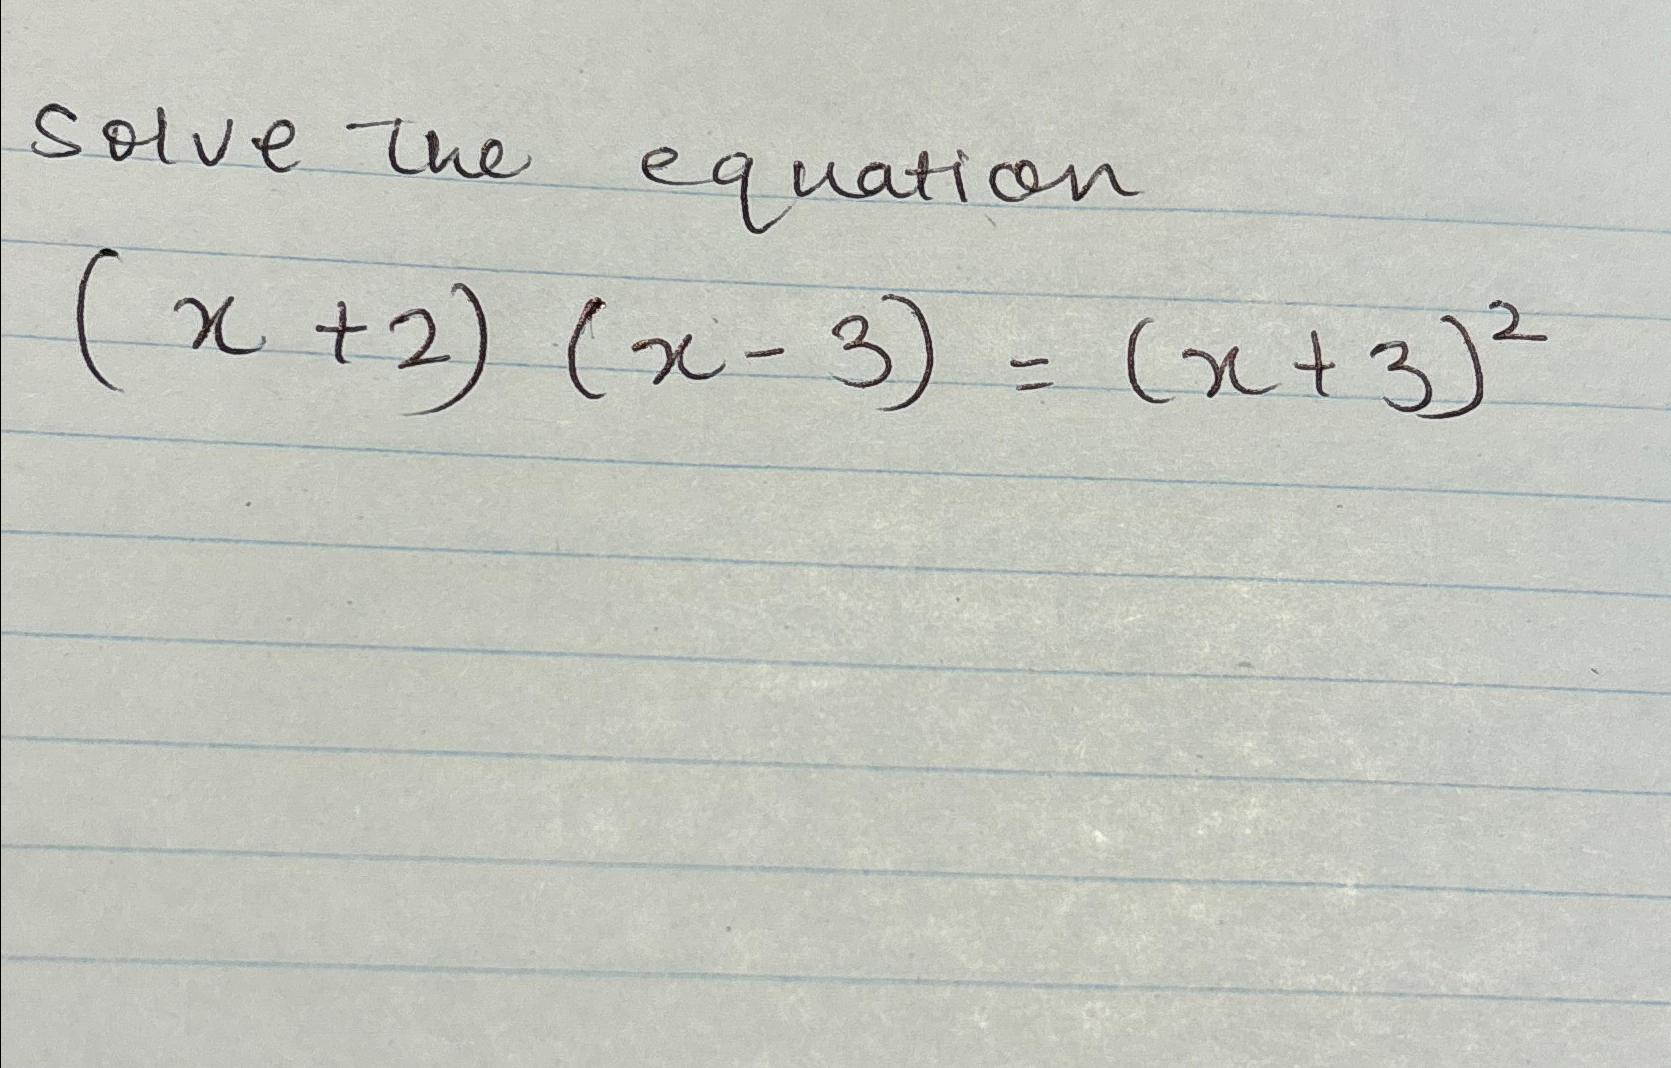 solve the equation
(x + 2) (x - 3) = (x + 3)²